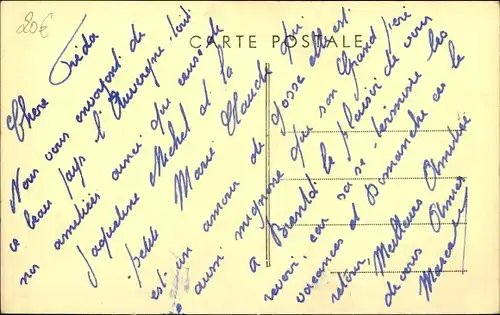 20€
CARTE POSTALE
Chère Frida
Nous vous envoyons de
ce beau pays l'Auvergne tout
nos amitiées ainsi qui ceuse de
Jaqueline Michel et la
petite Marie Claude qui
est un amour de gosse elle est
aussi mignone qui son Grand père
a Bientôt le plaisir de vous
revoir, car sa se terminse les
vacances et Dimanche ces le
retour, Meilleurs Amitiés
de vous Amies
Marcel